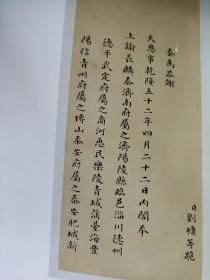 臣劉墉等跪
奏為恭謝
天恩事乾隆五十二年四月二十二日內閣奉
上諭長麟奏濟南府屬之濟陽陵縣臨邑淄川德州
德平武定府屬之商河惠民樂陵青城蒲臺海豐
陽信青州府屬之博山泰安府屬之泰安肥城新